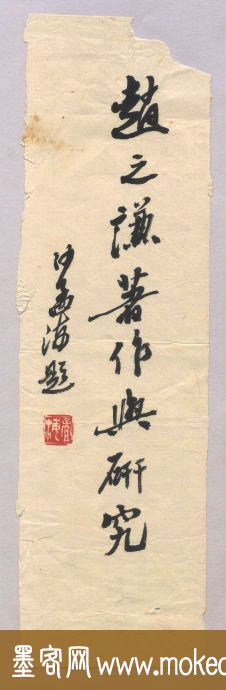 趙之謙著作與研究
沙孟海題
墨客网 www.mokec